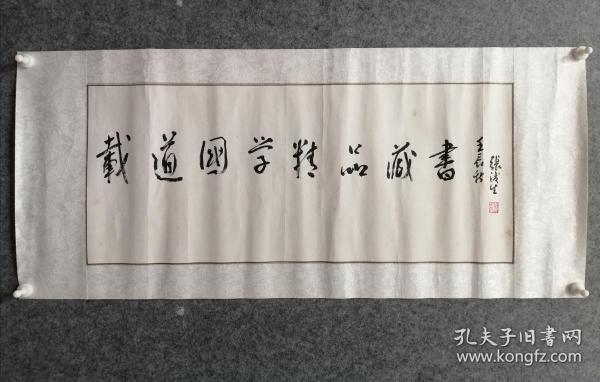 載道國学精品藏書
壬辰秋
張浅生
孔夫子旧书网
www.kongfz.com